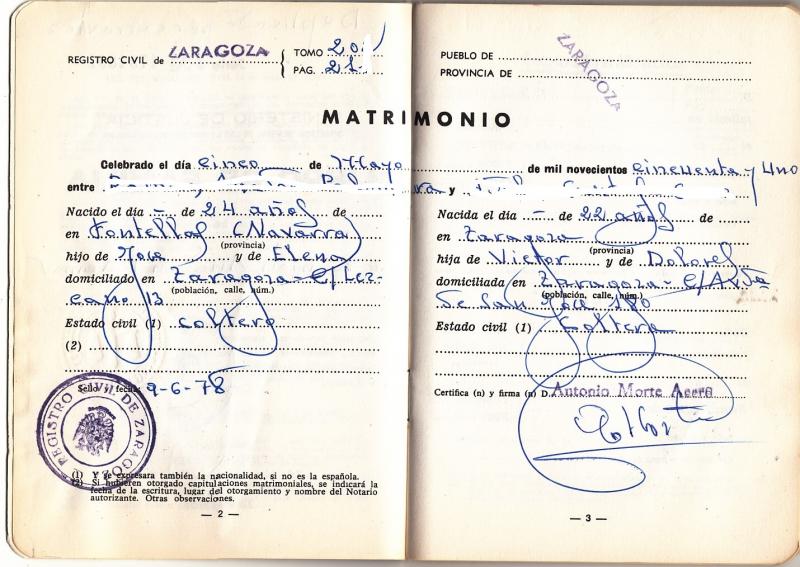 REGISTRO CIVIL de ZARAGOZA
TOMO 20
PAG. 21
MATRIMONIO
Celebrado el día cinco de Mayo
entre
Nacido el día - de 24 años de
en Fontellas (Navarra)
(provincia)
hijo de Jose y de Elena
domiciliado en Zaragoza - C/
13
(población, calle, núm.)
Estado civil (1) soltero
(2)
Sello y fecha: 9-6-78
REGISTRO CIVIL DE ZARAGOZA
(1) Y se expresara también la nacionalidad, si no es la española.
(2) Si hubieren otorgado capitulaciones matrimoniales, se indicará la
fecha de la escritura, lugar del otorgamiento y nombre del Notario
autorizante. Otras observaciones.
— 2 —
PUEBLO DE
PROVINCIA DE
ZARAGOZA
de mil novecientos cincuenta y uno
y
Nacida el día - de 22 años de
en Zaragoza
(provincia)
hija de Victor y de Dolores
domiciliada en Zaragoza - C/Avda
(población, calle, núm.)
de San Jose 180
Estado civil (1) soltera
Certifica (n) y firma (n) D. Antonio Morte Acera
— 3 —